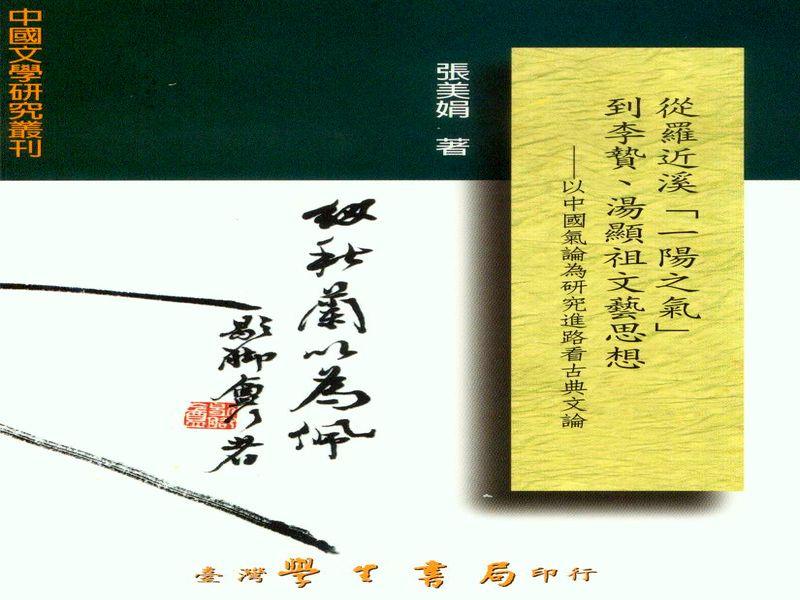 中國文學研究叢刊
從羅近溪「一陽之氣」
到李贄、湯顯祖文藝思想
——以中國氣論為研究進路看古典文論
張美娟 著
紉秋蘭以為佩
臺灣學生書局印行